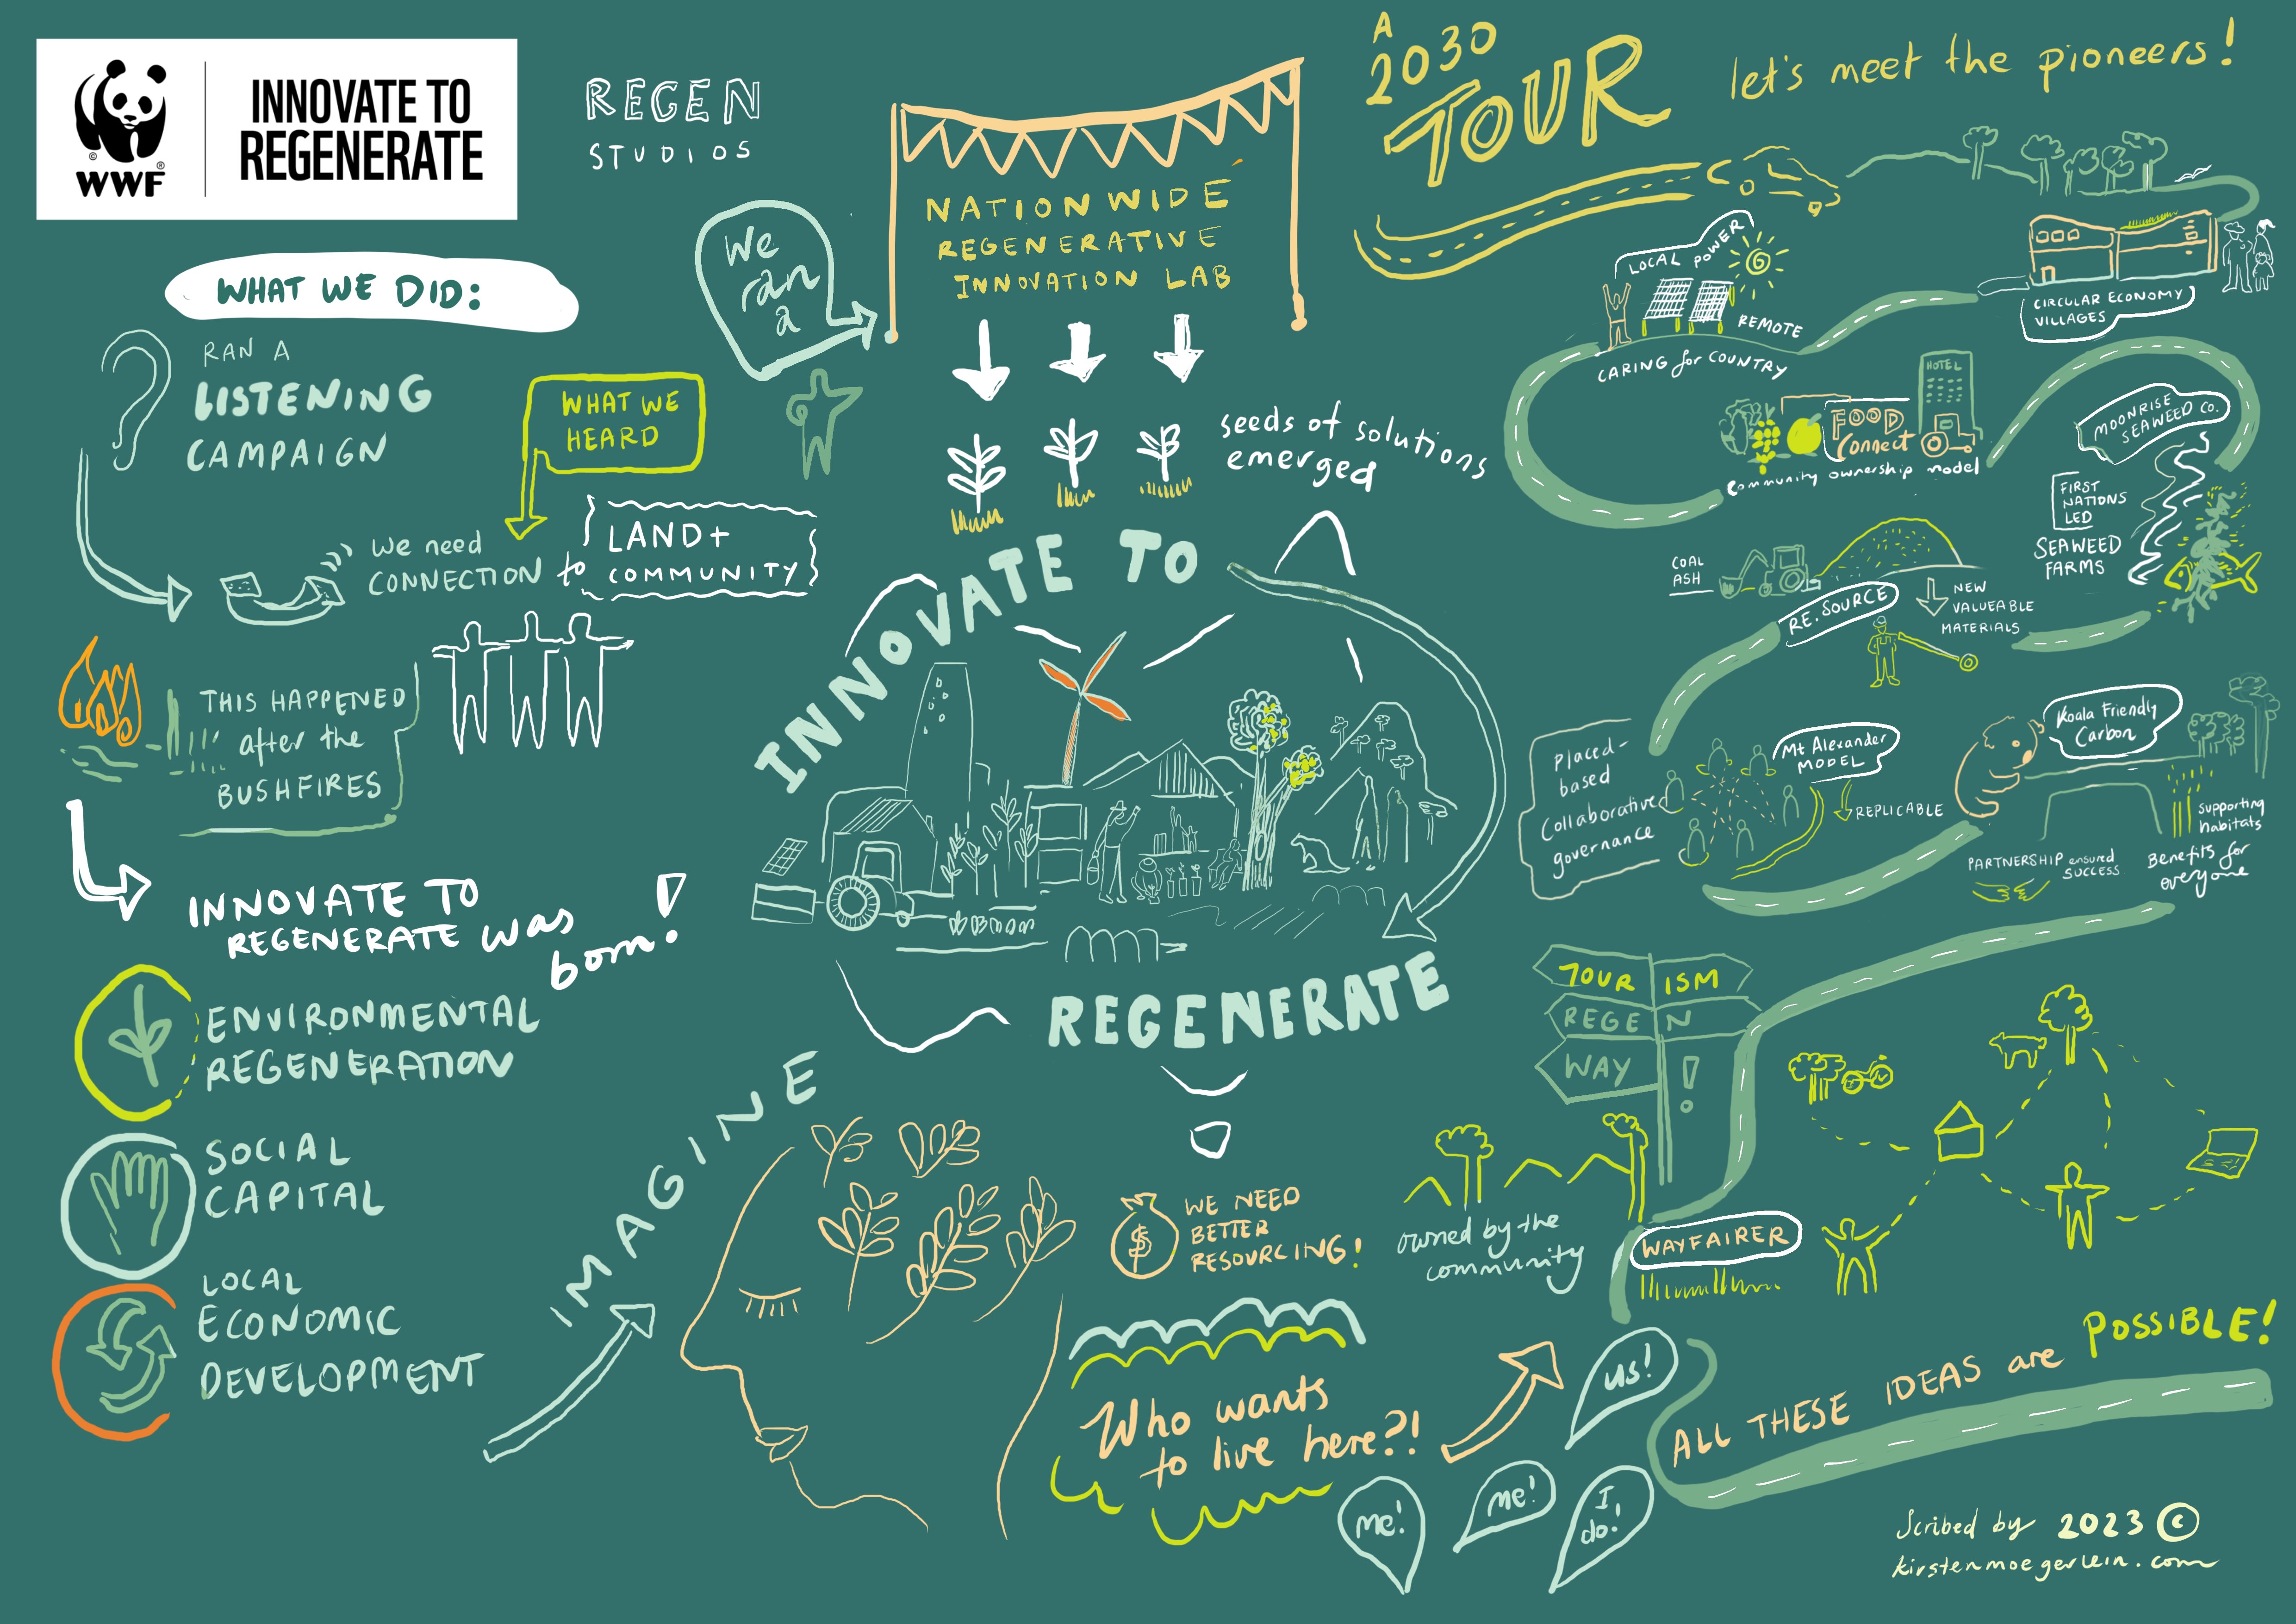 WWF
INNOVATE TO
REGENERATE
REGEN
STUDIOS
WHAT WE DID:
RAN A
LISTENING
CAMPAIGN
WHAT WE
HEARD
We need
CONNECTION
to
LAND+
COMMUNITY
THIS HAPPENED
after the
BUSHFIRES
INNOVATE TO
REGENERATE was
born!
ENVIRONMENTAL
REGENERATION
SOCIAL
CAPITAL
LOCAL
ECONOMIC
DEVELOPMENT
We
ran
a
NATIONWIDE
REGENERATIVE
INNOVATION LAB
seeds of solutions
emerged
INNOVATE TO
REGENERATE
IMAGINE
WE NEED
BETTER
RESOURCING!
$
Who wants
to live here?!
me!
me!
I
do!
us!
A
2030
TOUR
let's meet the pioneers!
LOCAL POWER
REMOTE
CARING for COUNTRY
CIRCULAR ECONOMY
VILLAGES
HOTEL
FOOD
Connect
community ownership model
MOONRISE
SEAWEED Co.
FIRST
NATIONS
LED
SEAWEED
FARMS
COAL
ASH
RE.SOURCE
NEW
VALUEABLE
MATERIALS
Placed-
based
Collaborative
governance
Mt Alexander
MODEL
REPLICABLE
Koala Friendly
Carbon
supporting
habitats
PARTNERSHIP ensured
SUCCESS
Benefits for
everyone
TOUR ISM
REGE N
WAY !
owned by the
community
WAYFAIRER
ALL THESE IDEAS are POSSIBLE!
Scribed by 2023 ©
kirstenmoegerlein.com